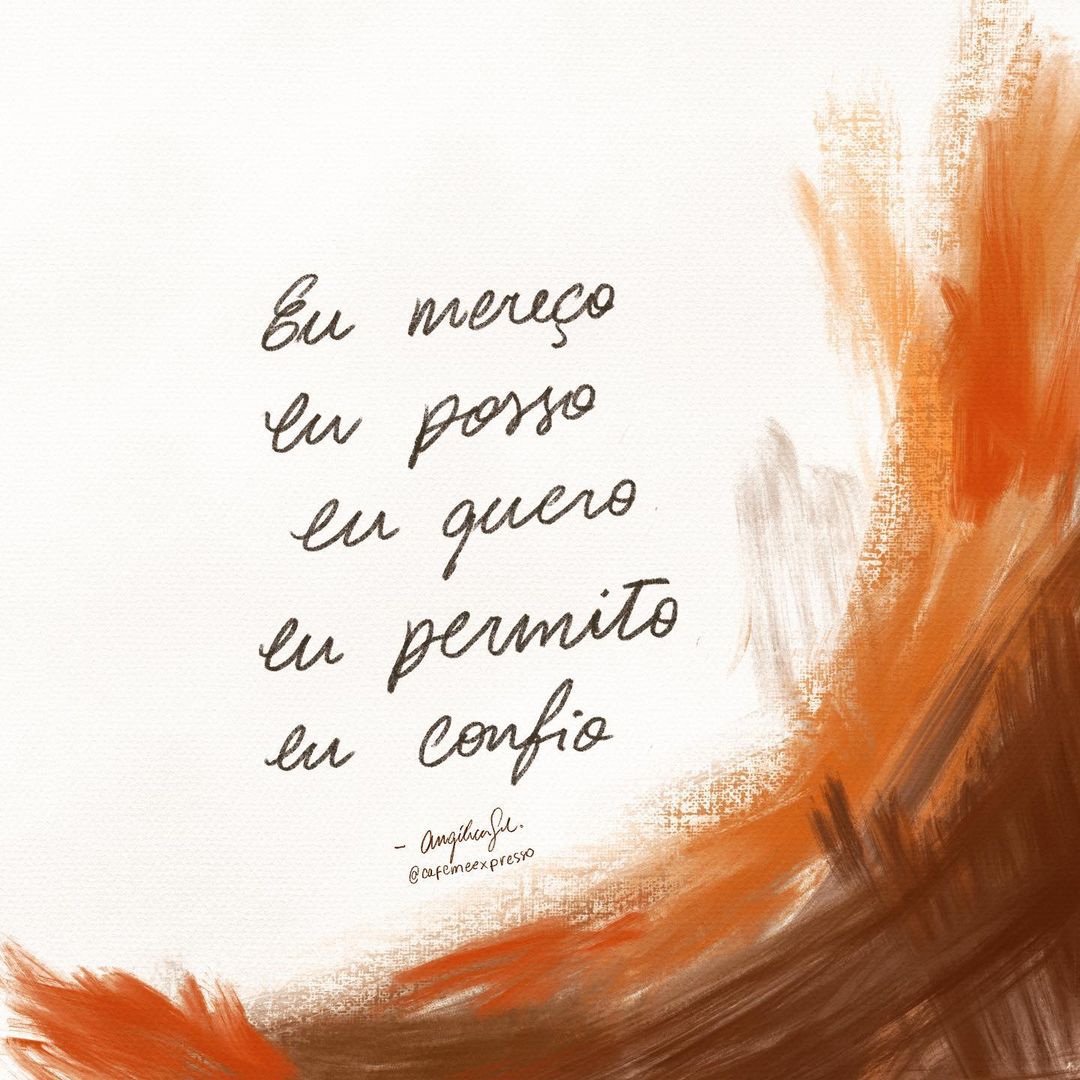 Eu mereço
eu posso
eu quero
eu permito
eu confio
@cafemeexpresso